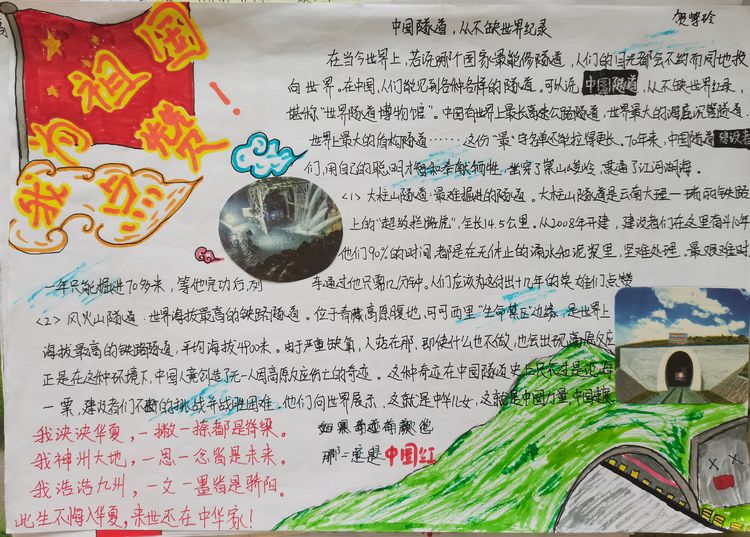 我为祖国点赞!
中国隧道，从不缺世界纪录
贺梦玲
在当今世界上，若说哪个国家最能修隧道，人们的目光都会不约而同地投
向世界。在中国，人们能见到各种各样的隧道。可以说中国隧道，从不缺世界纪录，
堪称"世界隧道博物馆"。中国有世界上最长高速公路隧道，世界最大的海底沉管隧道，
世界上最大的盾构隧道……这份"最"字名单还能拉得更长。70年来，中国隧道建设者
们，用自己的聪明才智和奉献牺牲，凿穿了崇山峻岭，贯通了江河湖海。
<1>大柱山隧道：最难掘进的隧道。大柱山隧道是云南大理一瑞丽铁路
上的"超级拦路虎"，全长14.5公里。从2008年开建，建设者们在这里奋斗10年
他们90%的时间都是在无休止的涌水和泥浆里，坚难处理。最艰难时
一年只能掘进70多米，等他完功后，列车通过他只需几分钟。人们应该为这付出十几年的英雄们点赞
<2>风火山隧道：世界海拔最高的铁路隧道。位于青藏高原腹地，可可西里"生命禁区"边缘，是世界上
海拔最高的铁路隧道，平均海拔4900米。由于严重缺氧，人站在那，即使什么也不做，也会出现高原反应
正是在这种环境下，中国人竟创造了无一人因高原反应伤亡的奇迹。这种奇迹在中国隧道史上只不过是沧海
一粟，建设者们不断的挑战并战胜困难。他们向世界展示，这就是中华儿女，这就是中国力量，中国
我泱泱华夏，一撇一捺都是脊梁。
我神州大地，一思一念皆是未来。
我浩浩九州，一文一墨皆是骄阳。
此生不悔入华夏，来世还在中华家！
如果奇迹有颜色
那一定是中国红